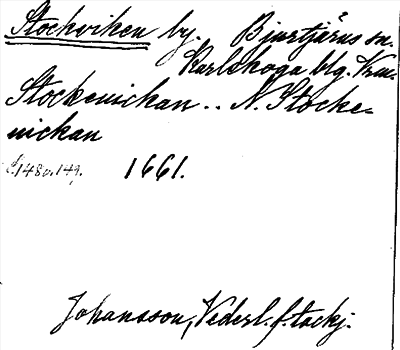 Stockviken by. Bjurtjärns sn.
Karlskoga blg. Vrml.
Stockewickan .. N. Stocke-
wickan
s. 148 o. 149. 1661.
Johansson, Vederl. f. tackj.